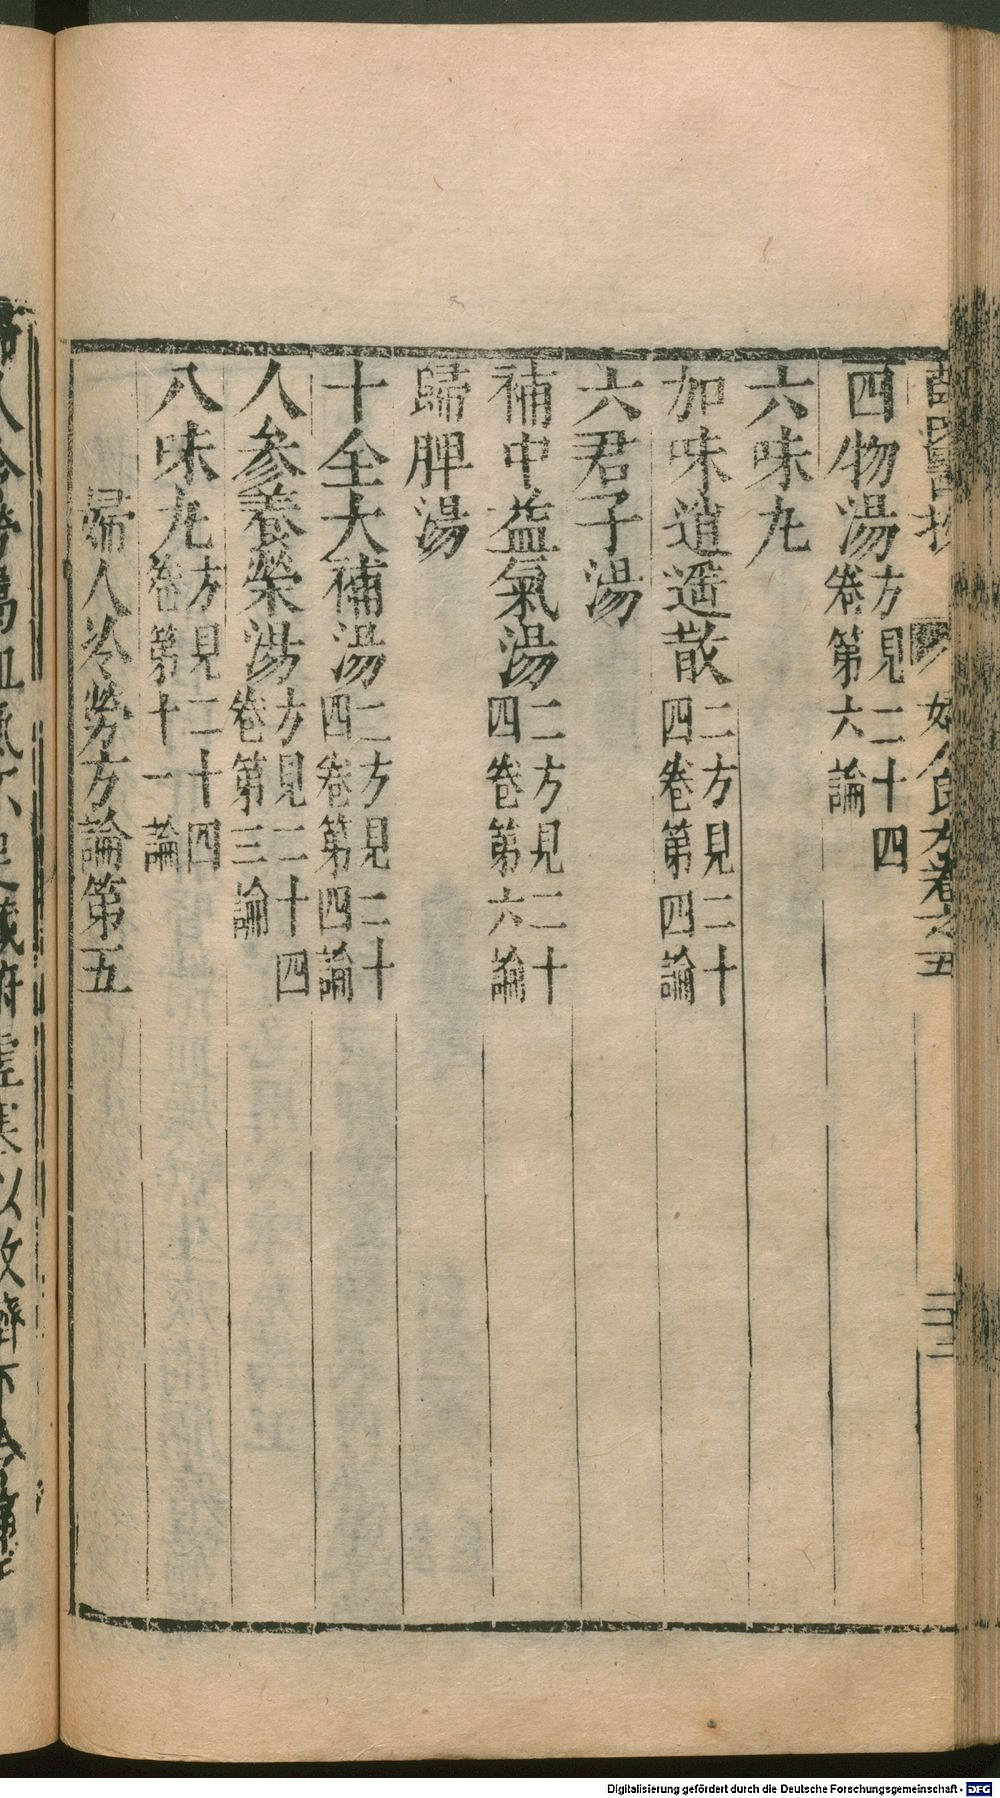 四物湯方見二十四卷第六論
六味丸
加味逍遥散二方見二十四卷第四論
六君子湯
補中益氣湯二方見二十四卷第六論
歸脾湯
十全大補湯二方見二十四卷第四論
人參養榮湯方見二十四卷第三論
八味丸方見二十四卷第十一論
婦人冷勞方論第五
Digitalisierung gefördert durch die Deutsche Forschungsgemeinschaft - DFG